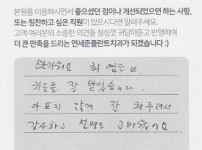 본원을 이용하시면서 좋으셨던 점이나 개선되었으면 하는 사항,
또는 칭찬하고 싶은 직원이 있으시다면 말씀해주세요.
고객 여러분의 소중한 의견을 정성껏 귀담아듣고 반영하여
더 큰 만족을 드리는 연세준플란트치과가 되겠습니다 :)
치료를 잘 받았습니다
아프지 않게 잘 해주셔서
감사하고